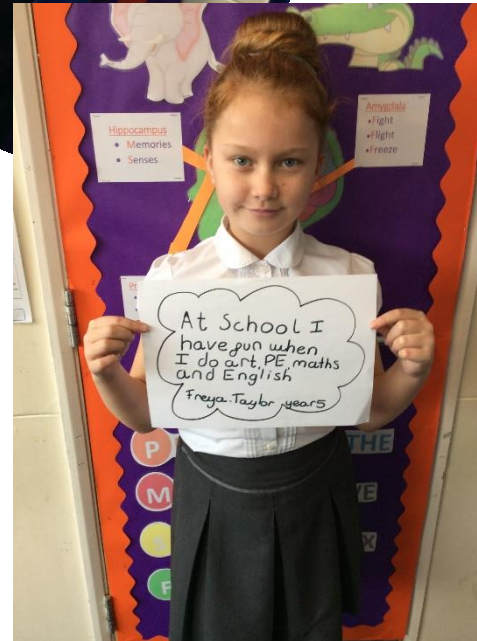 Hippocampus
• Memories
• Senses
Amygdala
•Fight
•Flight
•Freeze
At School I
have fun when
I do art, PE, maths
and English
Freya.Taylor year5
P
THE
M
F